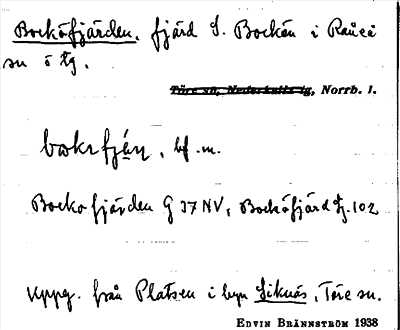 Bocköfjärden, fjärd S. Bockön i Råneå
sn ö lg.
Töre sn, Nederkalix lg, Norrb. l.
bokrfjɑ́ṇ, bf. m.
Bockofjärden G 37 NV, Bocköfjärd Jg. 102
Uppg. från Platsen i byn Siknäs, Töre sn.
EDVIN BRÄNNSTRÖM 1938